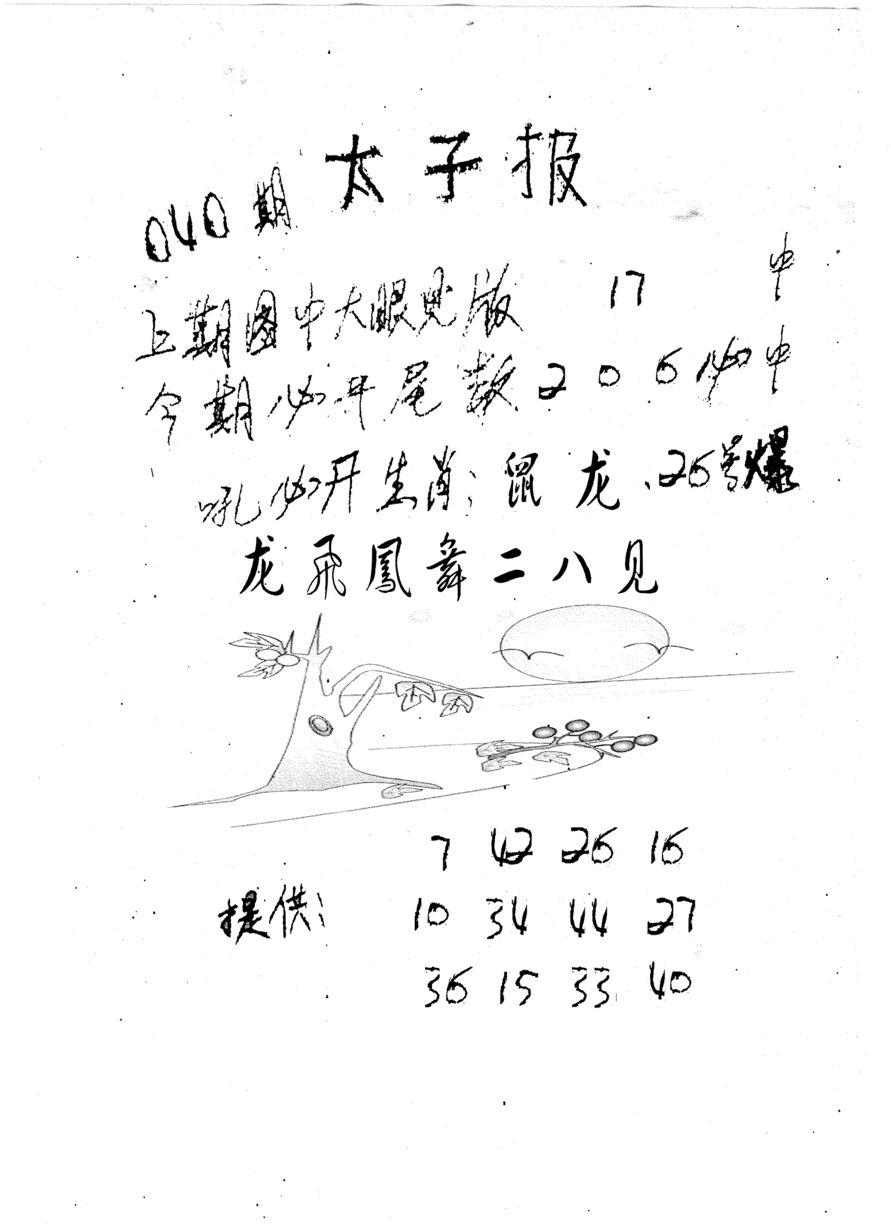 太子报
040期
上期图中大眼见版 17 中
今期必开尾数 2 0 6 必中
吼必开生肖：鼠龙.26号爆
龙飛鳳舞二八见
7 42 26 16
提供： 10 34 44 27
36 15 33 40